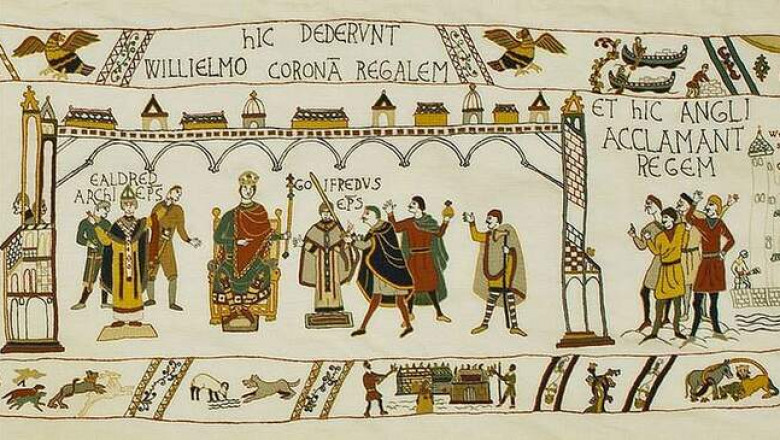 hIC DEDERVNT
WILLIELMO CORONĀ REGALEM
EALDRED
ARCHI EPS
GOIFREDVS
EPS
ET hIC ANGLI
ACCLAMANT
REGEM